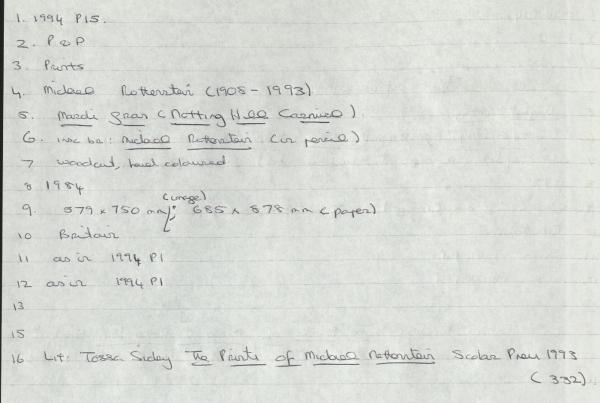 1. 1994 P15.
2. P & D
3. Prints
4. Michael Rothenstein (1908 - 1993)
5. Mardi Gras (Notting Hill Carnival)
6. insc b.r: Michael Rothenstein (in pencil)
7 woodcut, hand coloured
8 1984
(image)
9. 579 x 750 mm; 685 x 878 mm (paper)
10 Britain
11 as in 1994 P1
12 as in 1994 P1
13
15
16 Lit: Tessa Sidey The Prints of Michael Rothenstein Scolar Press 1993
(332)